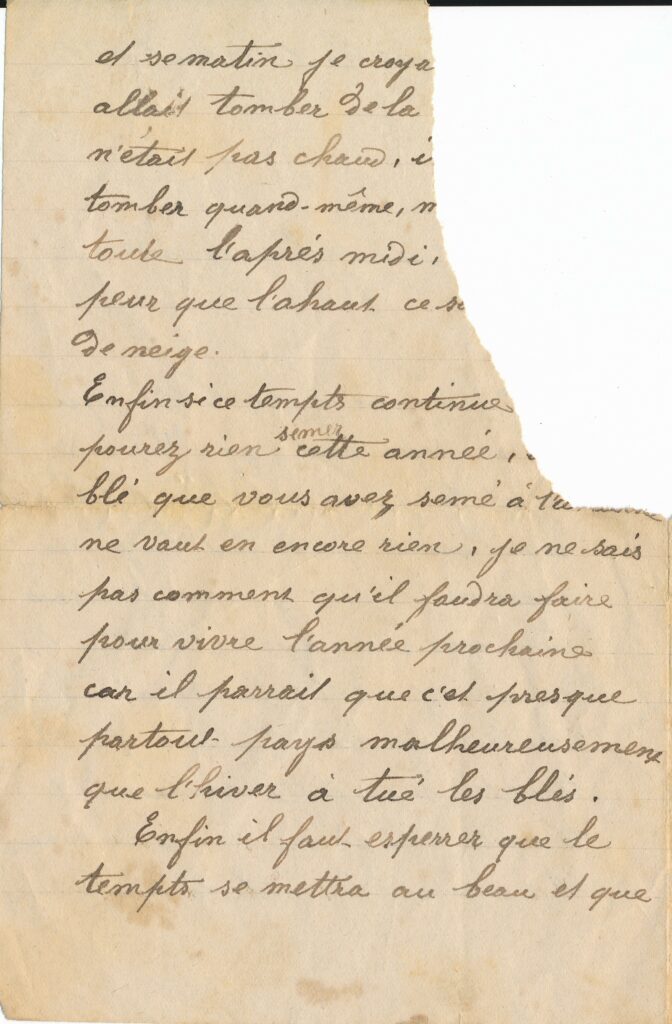 et se matin je croya
allait tomber de la
n'était pas chaud, i
tomber quand-même, m
toute l'aprés midi,
peur que l'ahaut ce s
de neige.
Enfin si ce tempts continue
pourez rien semer cette année,
blé que vous avez semé à
ne vaut en encore rien, je ne sais
pas comment qu'il faudra faire
pour vivre l'année prochaine
car il parrait que c'et presque
partout pays malheureusement
que l'hiver à tué les blés.
Enfin il faut esperrer que le
tempts se mettra au beau et que